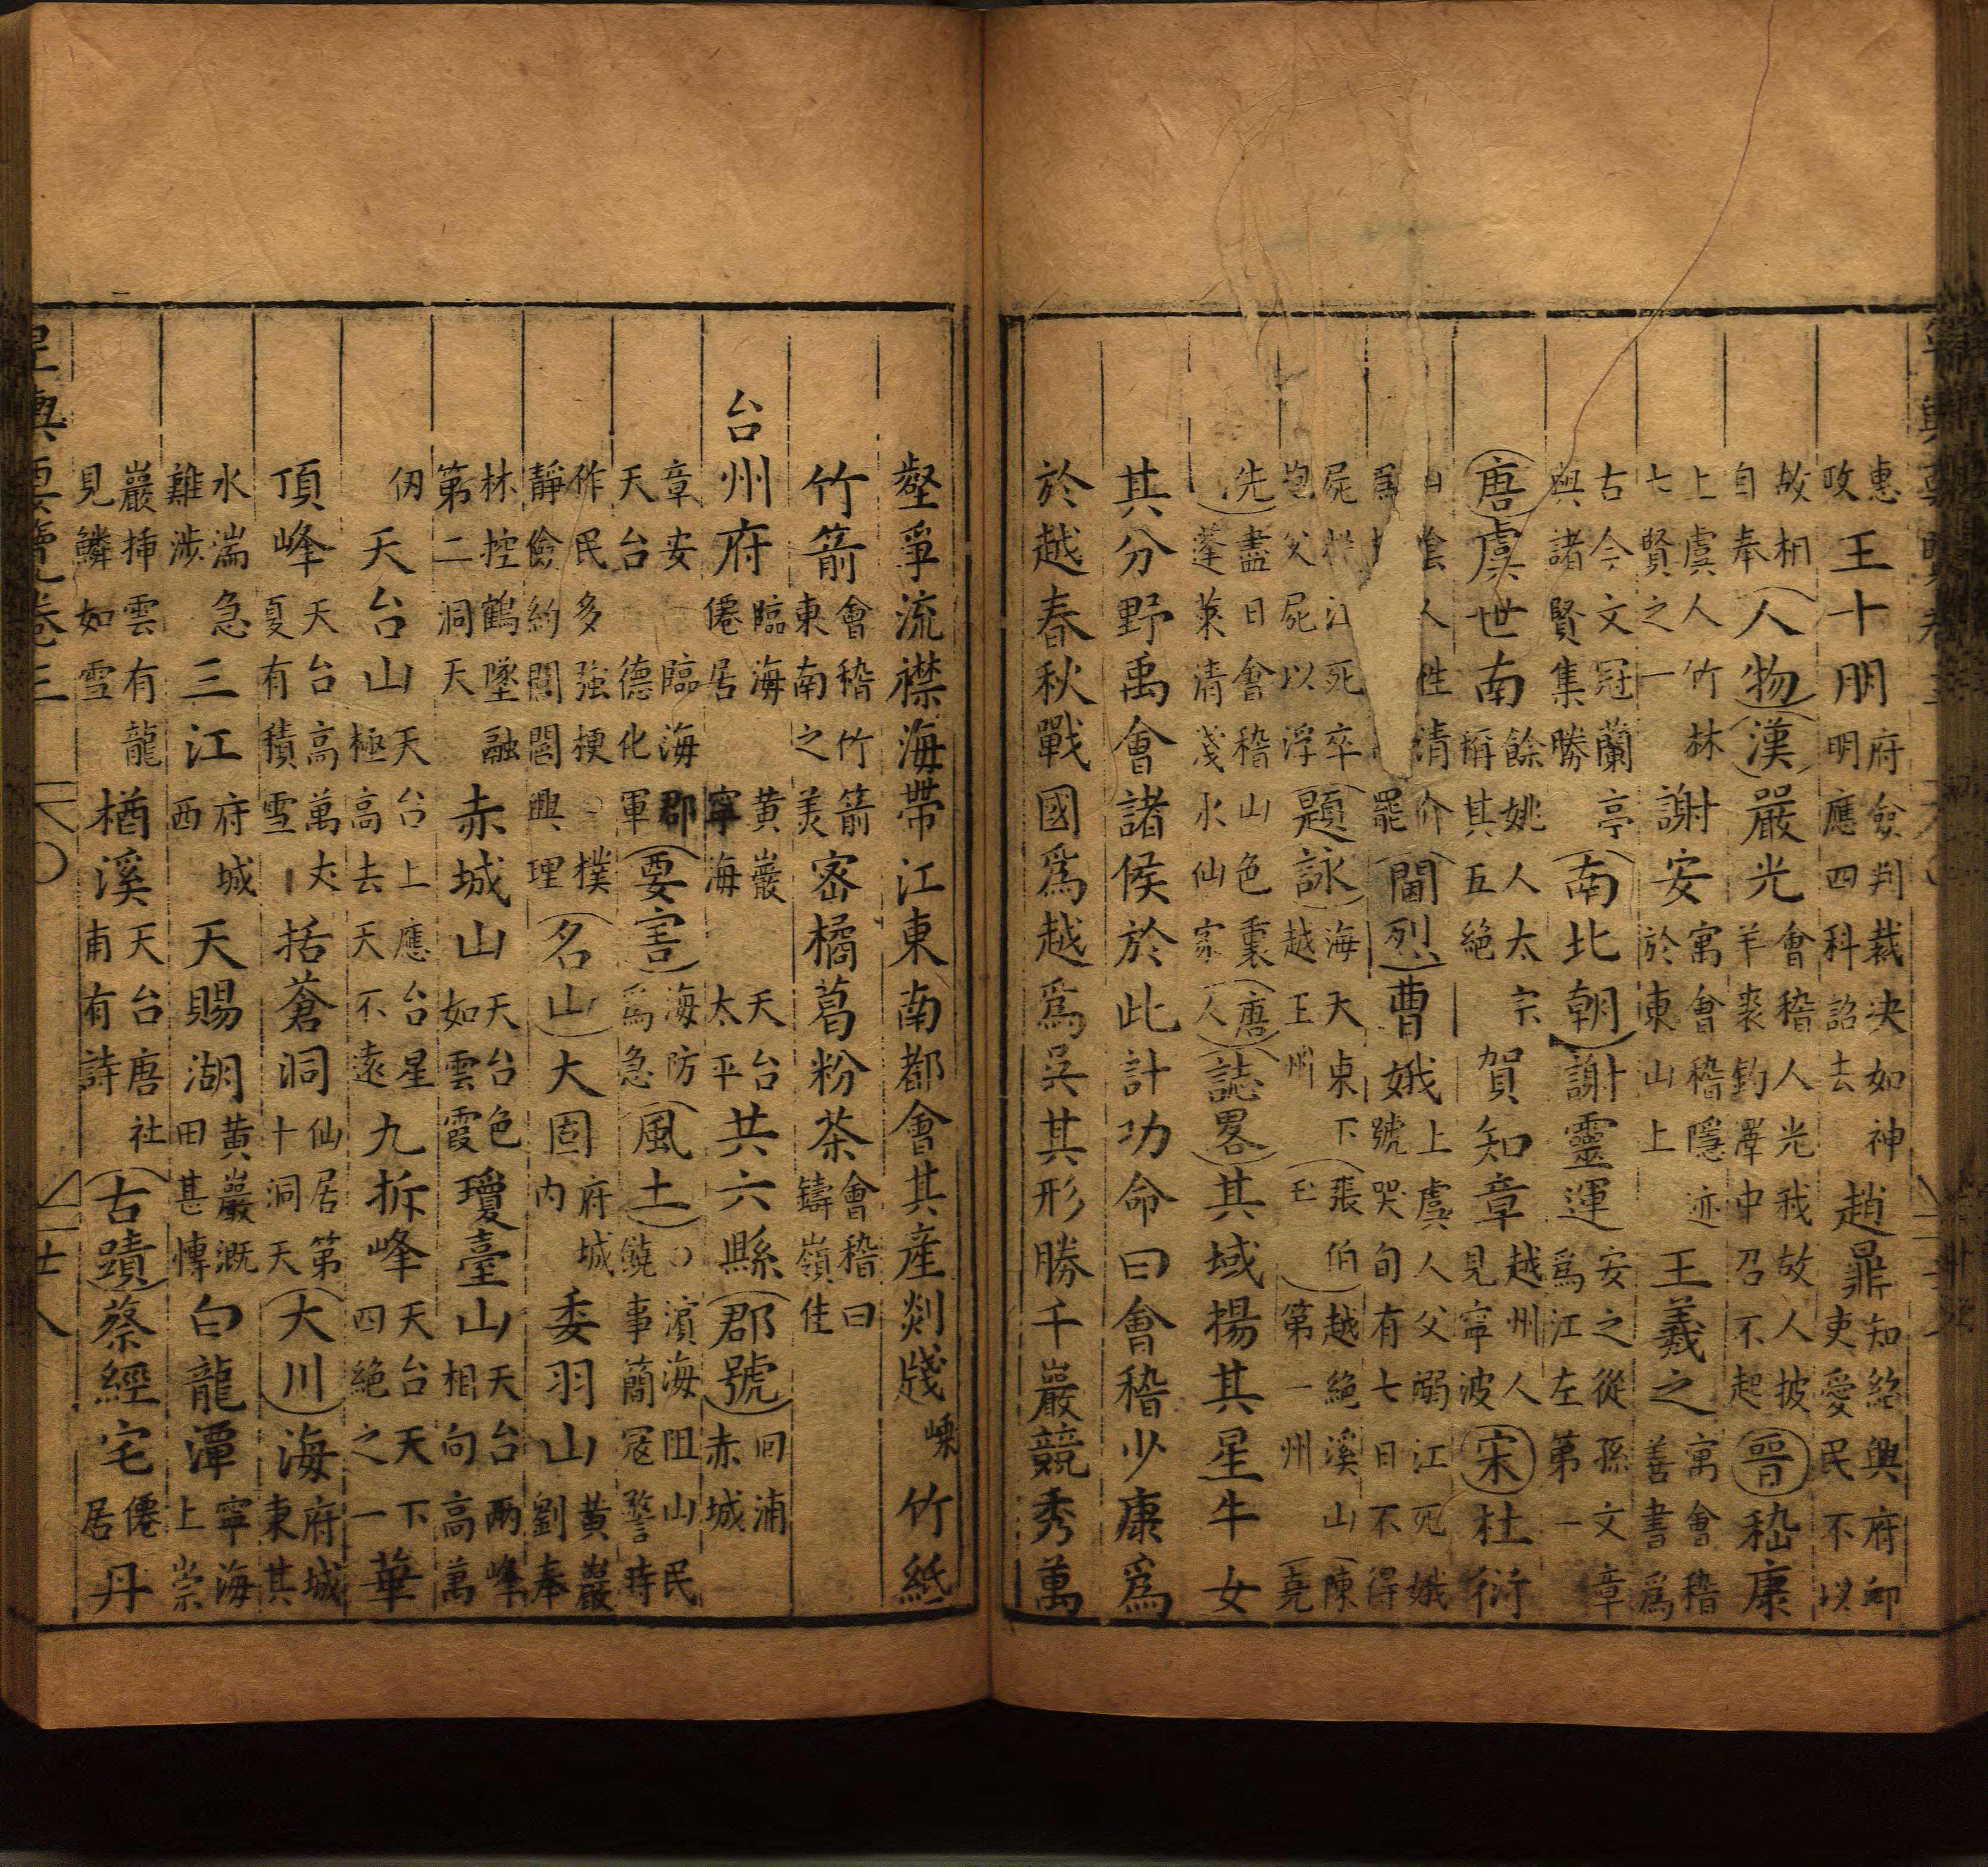 惠政王十朋府僉判裁决如神明應四科詔去趙暴知紹興府卹吏愛民不以
故相自奉人物漢嚴光會稽人光我故人披羊裘釣澤中召不起晉嵇康
上虞人竹林七賢之一謝安寓會稽隱迹於東山上王羲之寓會稽善書為
古今文冠蘭亭與諸賢集勝南北朝謝靈運安之從孫文章為江左第一
唐虞世南餘姚人太宗稱其五絶賀知章越州人見寧波宋杜衍
人性清介罷閫烈曹娥上虞人父溺江死娥號哭旬有七日不得
屍死卒抱父屍以浮題詠海天東下越王州張伯玉越絶溪山第一州陳堯
先盡日會稽山色裏蓬萊清淺水仙家唐人誌畧其域揚其星牛女
其分野禹會諸侯於此計功命曰會稽少康為
於越春秋戰國為越為吳其形勝千巖競秀萬
壑爭流襟海帶江東南都會其産剡牋嵊竹紙
竹箭會稽竹箭東南之美宻橘葛粉茶會稽日鑄嶺佳
台州府臨海僊居黄巖寧海天台太平共六縣郡號回浦赤城
章安天台臨海郡德化軍要害海防為急風土濱海阻山民饒事簡冦警時
作民多強梗樸靜儉約閭閻興理名山大固府城内委羽山黄巖劉奉
林控鶴墜融第二洞天赤城山天台色如雲霞瓊臺山天台兩峰相向高萬
仭天台山天台上應台星極高去天不遠九折峰天台天下四絶之一華
頂峰天台高萬丈夏有積雪括蒼洞仙居第十洞天大川海府城東其
水湍急難涉三江府城西天賜湖黄巖溉田甚慱白龍潭寧海上崇
巖挿雲有龍見鱗如雪楢溪天台唐社甫有詩古蹟蔡經宅僊居丹
輿要覽卷三